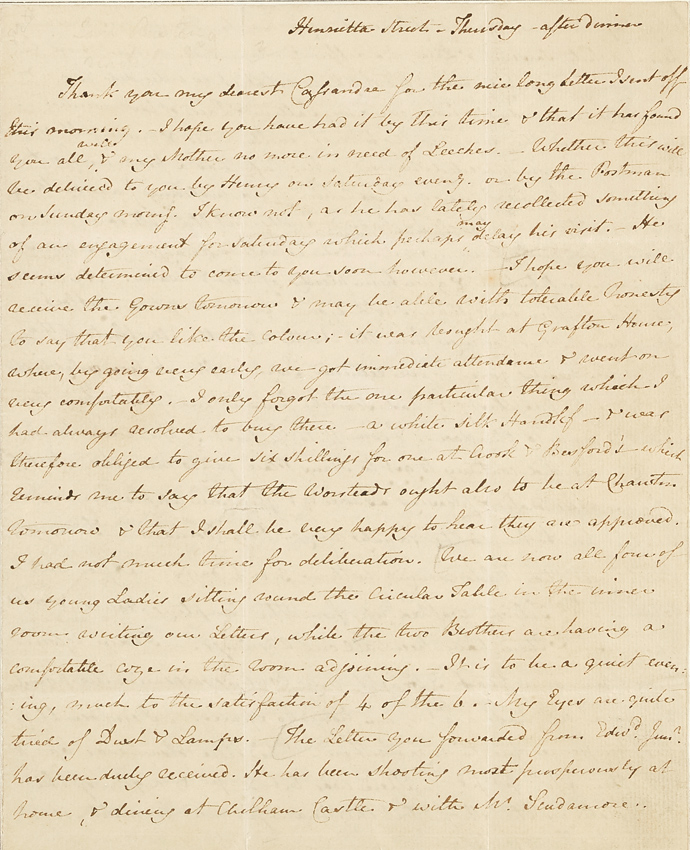 Henrietta Street - Thursday - after dinner
Thank you my dearest Cassandra for the nice long Letter I sent off
this morning. - I hope you have had it by this time & that it has found
you all well, & my Mother no more in need of Leeches. - Whether this will
be delivered to you by Henry on Saturday eveng. or by the Postman
on Sunday morng. I know not, as he has lately recollected something
of an engagement for Saturday which perhaps may delay his visit. - He
seems determined to come to you soon however. - I hope you will
receive the Gown tomorrow & may be able with tolerable honesty
to say that you like the Colour; - it was bought at Grafton House,
where, by going very early, we got immediate attendance & went on
very comfortably. - I only forgot the one particular thing which I
had always resolved to buy there - a white silk Handkf - & was
therefore obliged to give six shillings for one at Crook & Besford's - which
reminds me to say that the Worsteds ought also to be at Chawton
tomorrow & that I shall be very happy to hear they are approved.
I had not much time for deliberation. We are now all four of
us young Ladies sitting round the Circular Table in the inner
room writing our Letters, while the two Brothers are having a
comfortable coze in the room adjoining. - It is to be a quiet even:
:ing, much to the satisfaction of 4 of the 6. - My Eyes are quite
tired of Dust & Lamps. - The Letter you forwarded from Edwd. Junr.
has been duly received. He has been shooting most prosperously at
home, & dining at Chilham Castle & with Mr. Scudamore. -